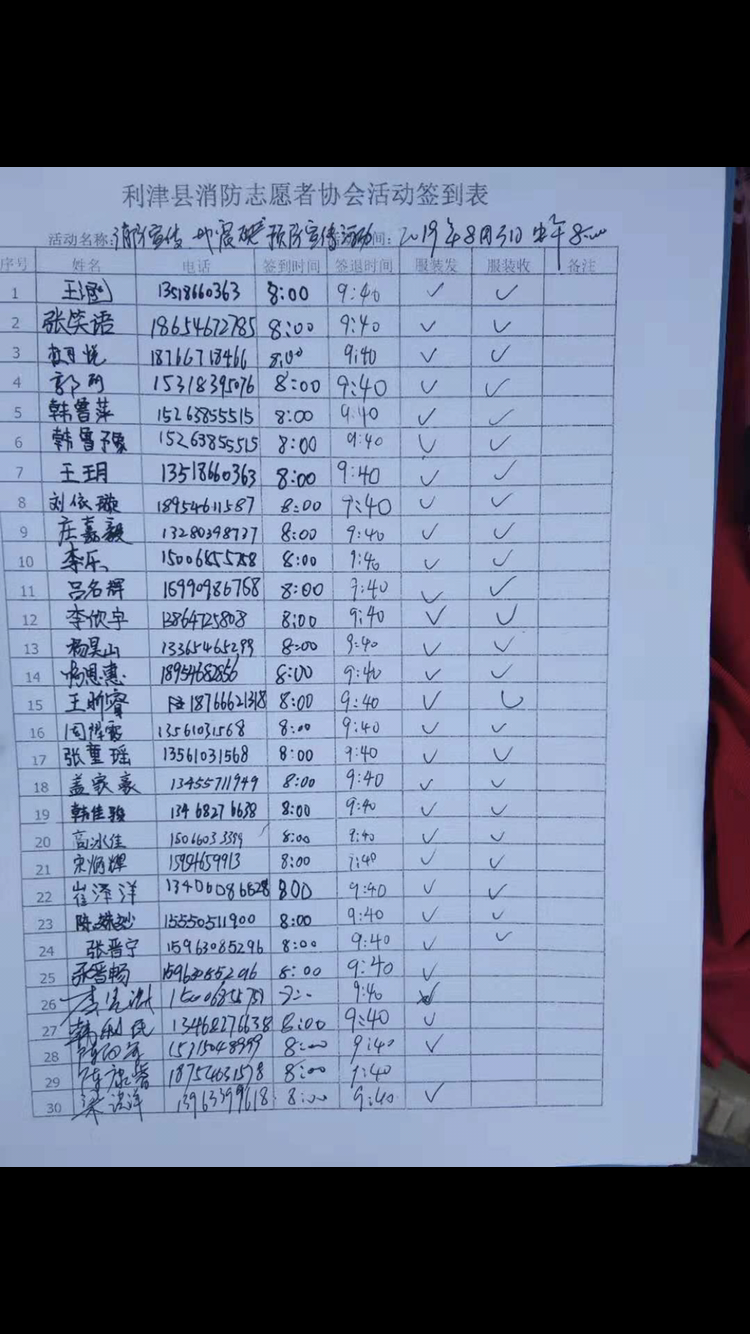 利津县消防志愿者协会活动签到表
活动名称:消防宣传 地震 预防宣传活动 间: 2019年8月31日 上午8:00
序号 姓名 电话 签到时间 签退时间 服装发 服装收 备注
1 王 13518660363 8:00 9:40 ✓ ✓
2 张笑语 18654672785 8:00 9:40 ✓ ✓
3 悦 18766718466 8:00 9:40 ✓ ✓
4 郭 15318395076 8:00 9:40 ✓ ✓
5 韩曾萍 15263855515 8:00 9:40 ✓ ✓
6 韩曾 15263855515 8:00 9:40 ✓ ✓
7 王玥 13518660363 8:00 9:40 ✓ ✓
8 刘依璇 18954611587 8:00 9:40 ✓ ✓
9 庄嘉毅 13280398737 8:00 9:40 ✓ ✓
10 李乐 15006855758 8:00 9:40 ✓ ✓
11 吕名辉 15990986768 8:00 9:40 ✓ ✓
12 李欣宇 13864725808 8:00 9:40 ✓ ✓
13 杨昊山 13365465299 8:00 9:40 ✓ ✓
14 杨恩惠 18954682856 8:00 9:40 ✓ ✓
15 王昕睿 18766621318 8:00 9:40 ✓ ✓
16 周 13561031568 8:00 9:40 ✓ ✓
17 张童瑶 13561031568 8:00 9:40 ✓ ✓
18 盖家豪 13455711949 8:00 9:40 ✓ ✓
19 韩佳骏 13468276638 8:00 9:40 ✓ ✓
20 高冰佳 8:00 9:40 ✓ ✓
21 宋炳辉 15954659913 8:00 9:40 ✓ ✓
22 崔泽洋 13406086528 800 9:40 ✓ ✓
23 陈 15550511900 8:00 9:40 ✓ ✓
24 张晋宁 15963085296 8:00 9:40 ✓ ✓
25 张晋畅 8:00 9:40 ✓
26 李 9:40
27 韩利民 13468276638 8:00 9:40 ✓
28 15315048999 8:00 9:40 ✓
29 陈康 18754631578 8:00 9:40
30 洋 13963399618 8:00 9:40 ✓